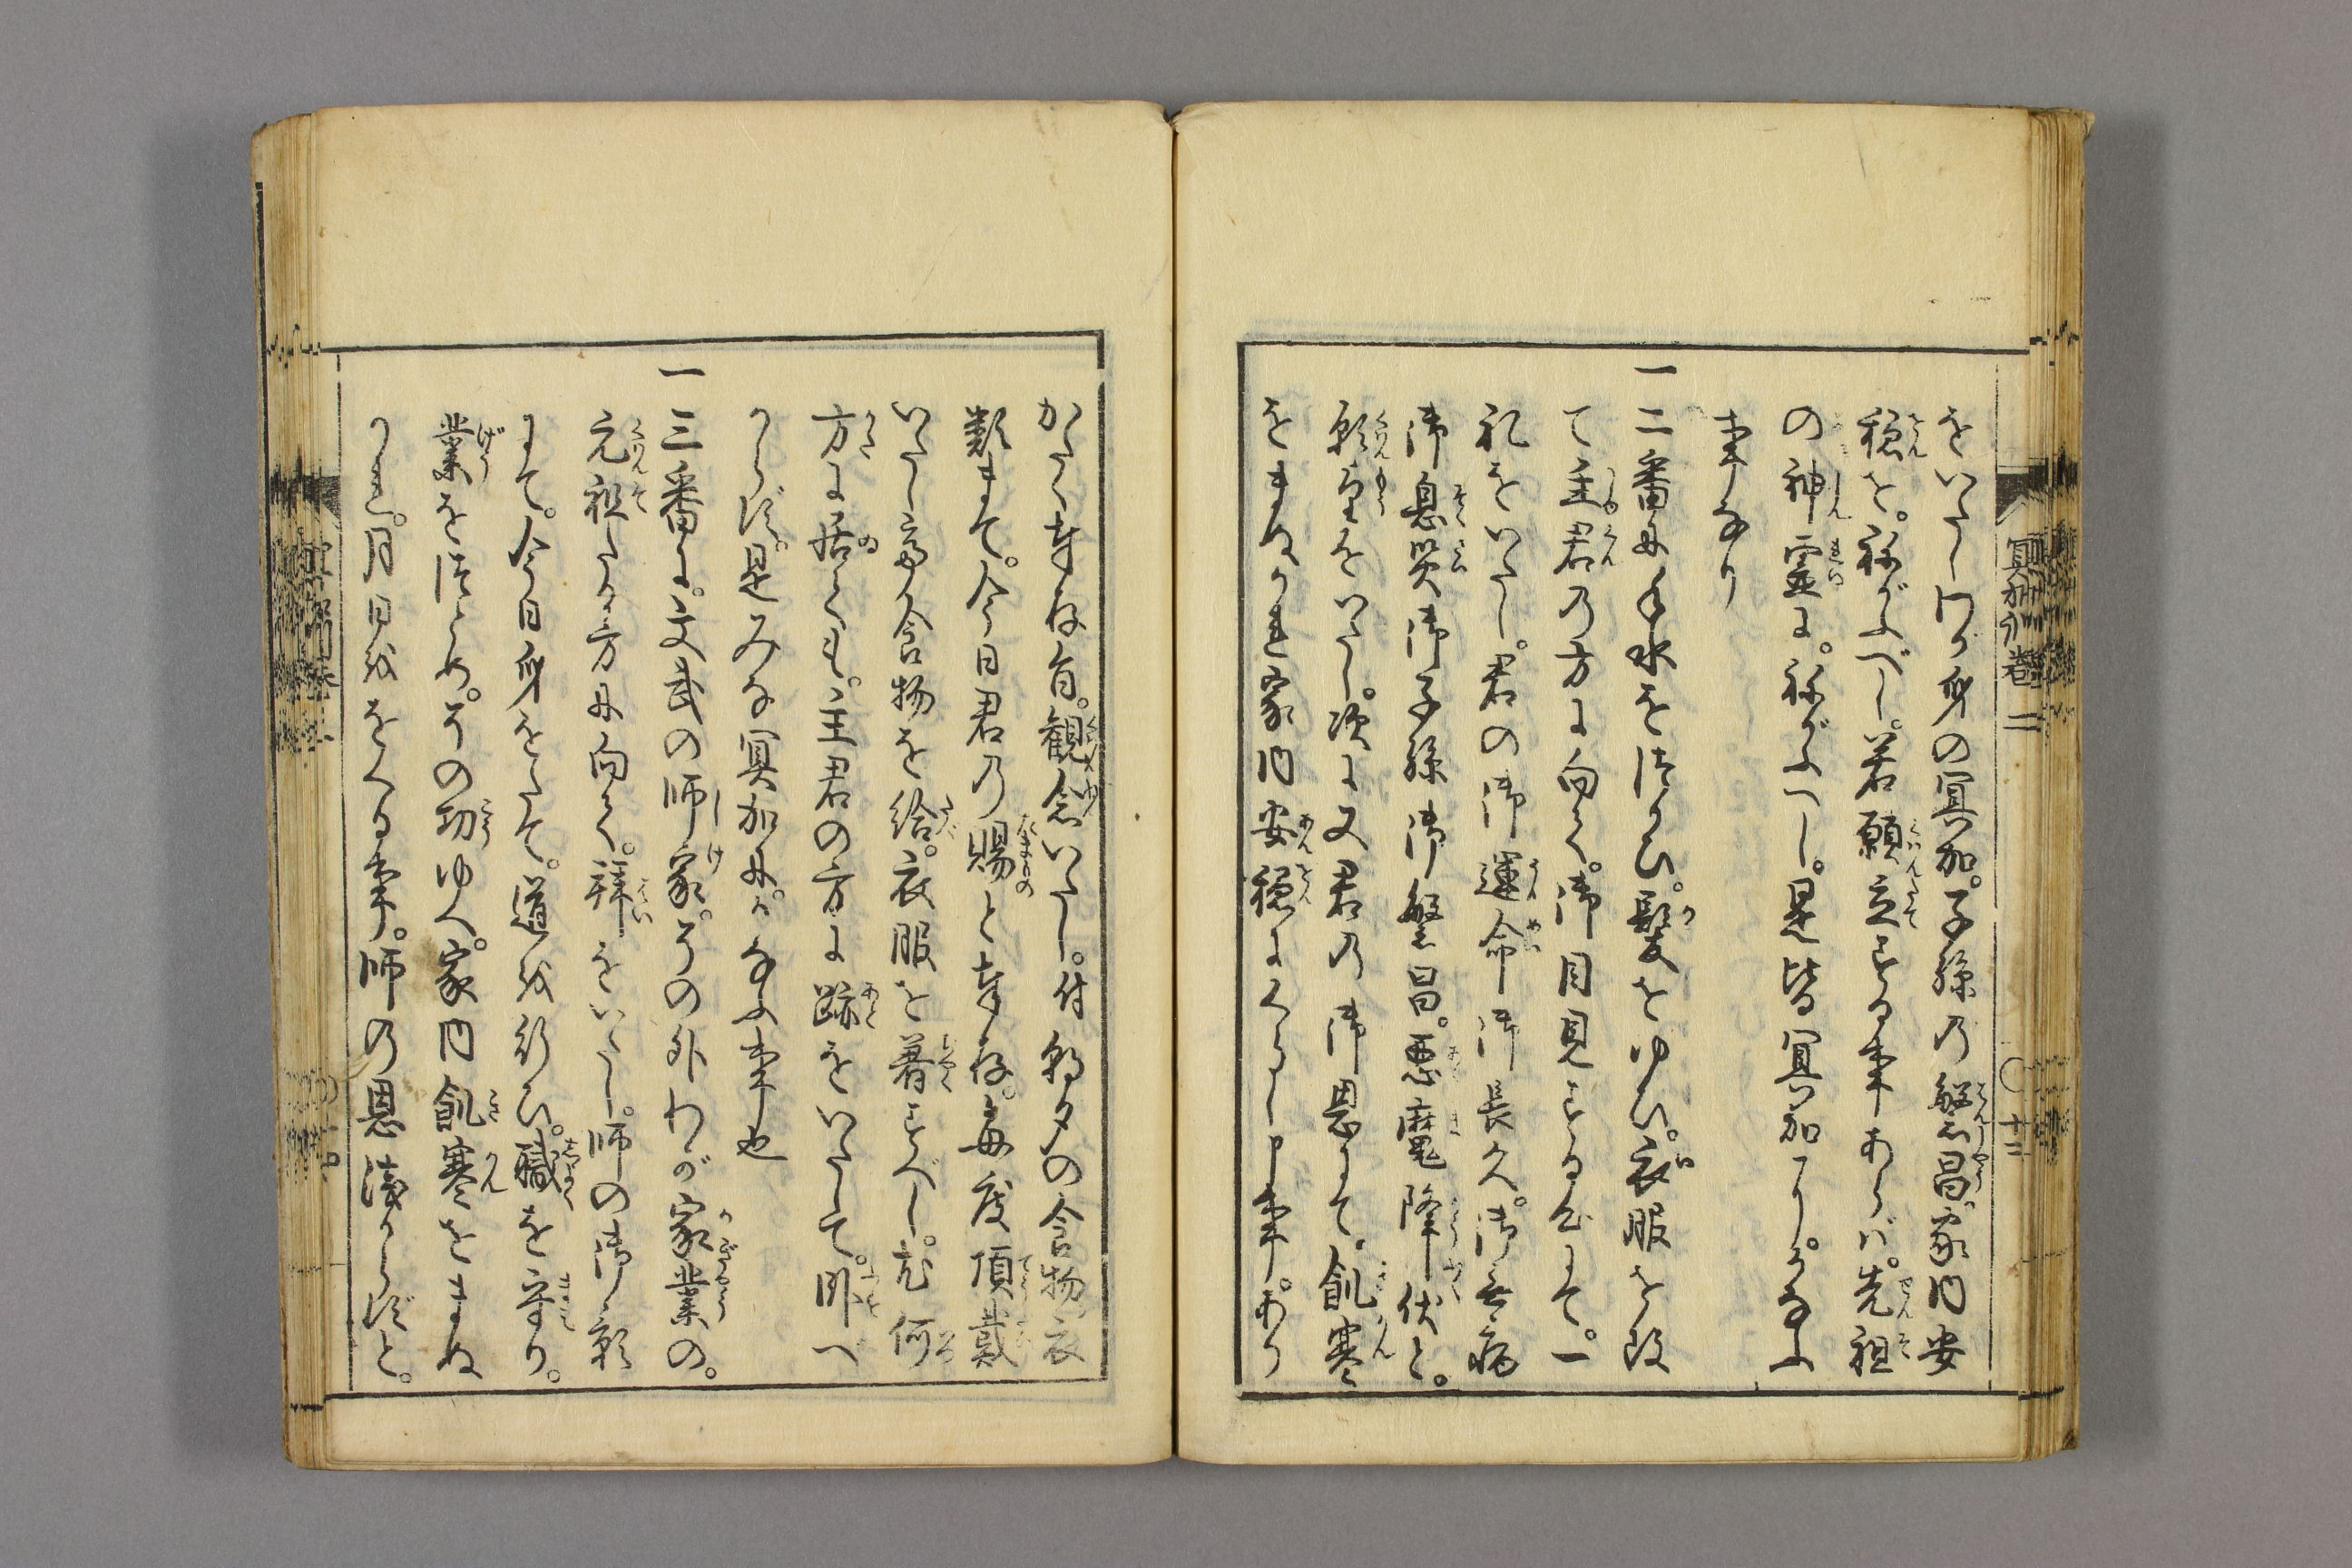 をいたし我が身の冥加。子孫の繁昌。家内安
穏を。祢がふべし。若願立する事あらバ。先祖
の神霊に。祢がふべし。是皆冥加にかなふ
事なり
一 二番に手水をつかひ。髪をゆひ。衣服を改
て主君の方に向て。御目見する心にて。一
礼をいたし。君の御運命御長久。御無病
御息災御子孫御繁昌。悪魔降伏と。
願望をいたし。次に又君の御恩にて。飢寒
をまぬかれ家内安穏にくらし申事。あり
かたく奉存旨。観念いたし。付朝夕の食物。衣
類まて。今日君の賜と奉存。毎度頂戴
いたし而食物を給。衣服を着すべし。尤何
方に居ても。主君の方に跡をいたして。臥べ
からず。是みな冥加に。かなふ事也
一 三番に。文武の師家。その外わが家業の。
元祖たる方に向て。拝をいたし。師の御影
にて。今日身をたて。道を行ひ。職を守り。
業をつとめ。その功ゆへ。家内飢寒をまぬ
かれ。月日をおくる事。師の恩浅からずと。
冥加巻二
十三